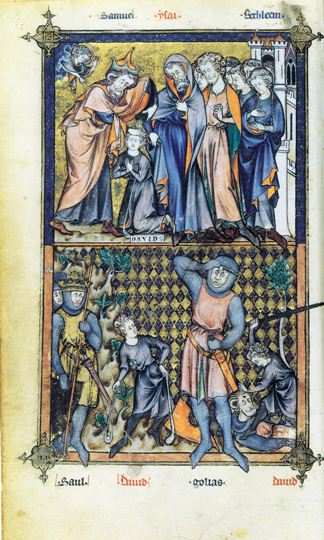 Samuel ysai Bethleem
DAVID
Saul David golias david